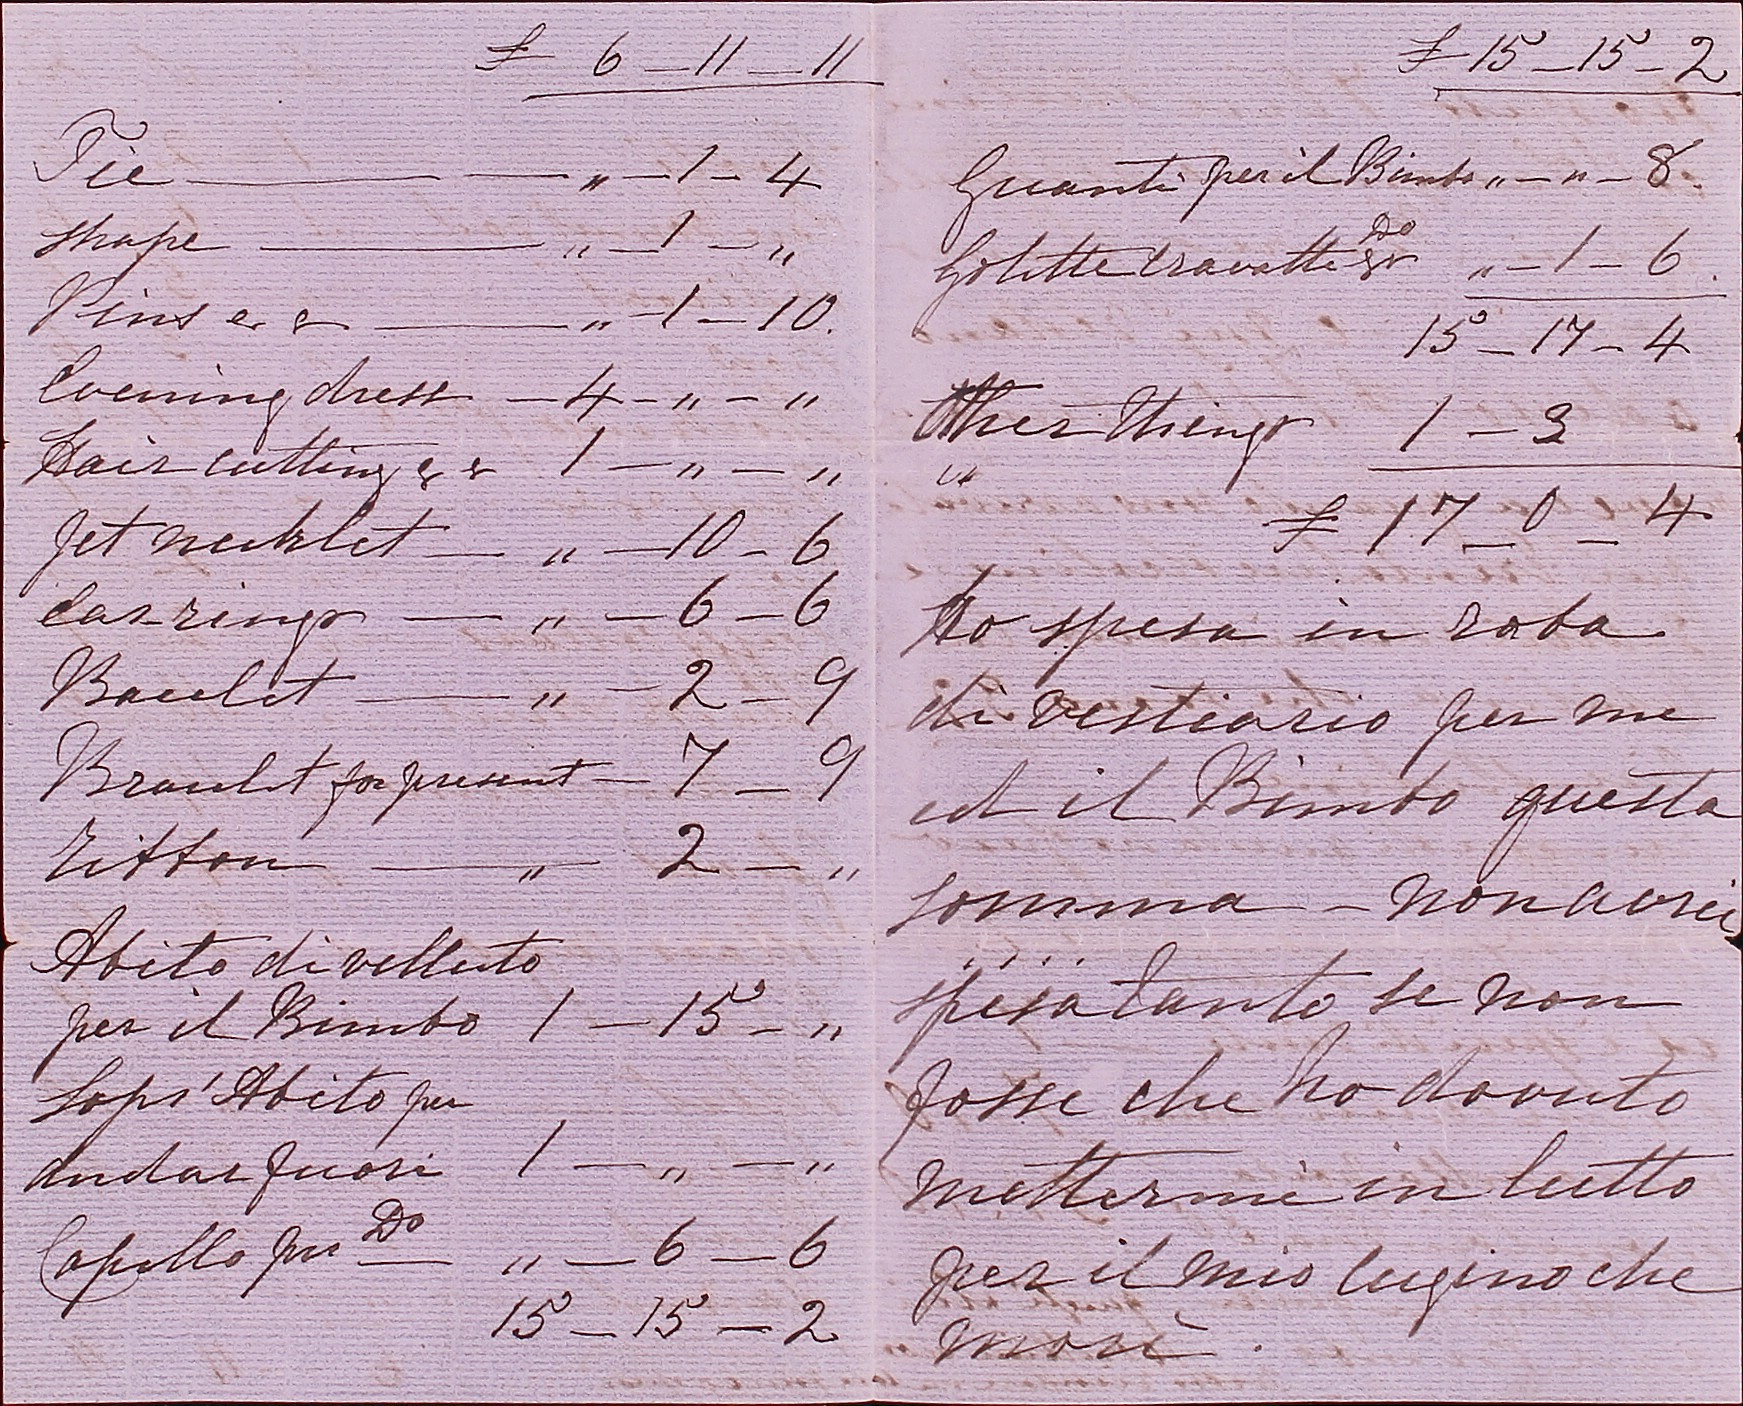 £ 6 — 11 — 11
Tie — „ — 1 — 4
shape — „ — 1 — „
Pins & & — „ — 1 — 10.
Evening dress — 4 — „ — „
Hair cutting & & 1 — „ — „
Jet necklet — „ — 10 — 6
Earrings — „ — 6 — 6
Bracelet — „ — 2 — 9
Bracelet for present — 7 — 9
Ribbon — „ 2 — „
Abito di velluto
per il Bimbo 1 — 15 — „
Sopr' Abito per
andar fuori 1 — „ — „
Capello per Do — „ — 6 — 6
15 — 15 — 2
£ 15 — 15 — 2
Guanti per il Bimbo „ — „ — 8.
Golette cravatte Do „ — 1 — 6.
15 — 17 — 4
Other things 1 — 3
£ 17 — 0 — 4
Ho spesa in roba
di vestiario per me
ed il Bimbo questa
somma — non avrei
spesa tanto se non
fosse che ho dovuto
mettermi in lutto
per il mio cugino che
morì.